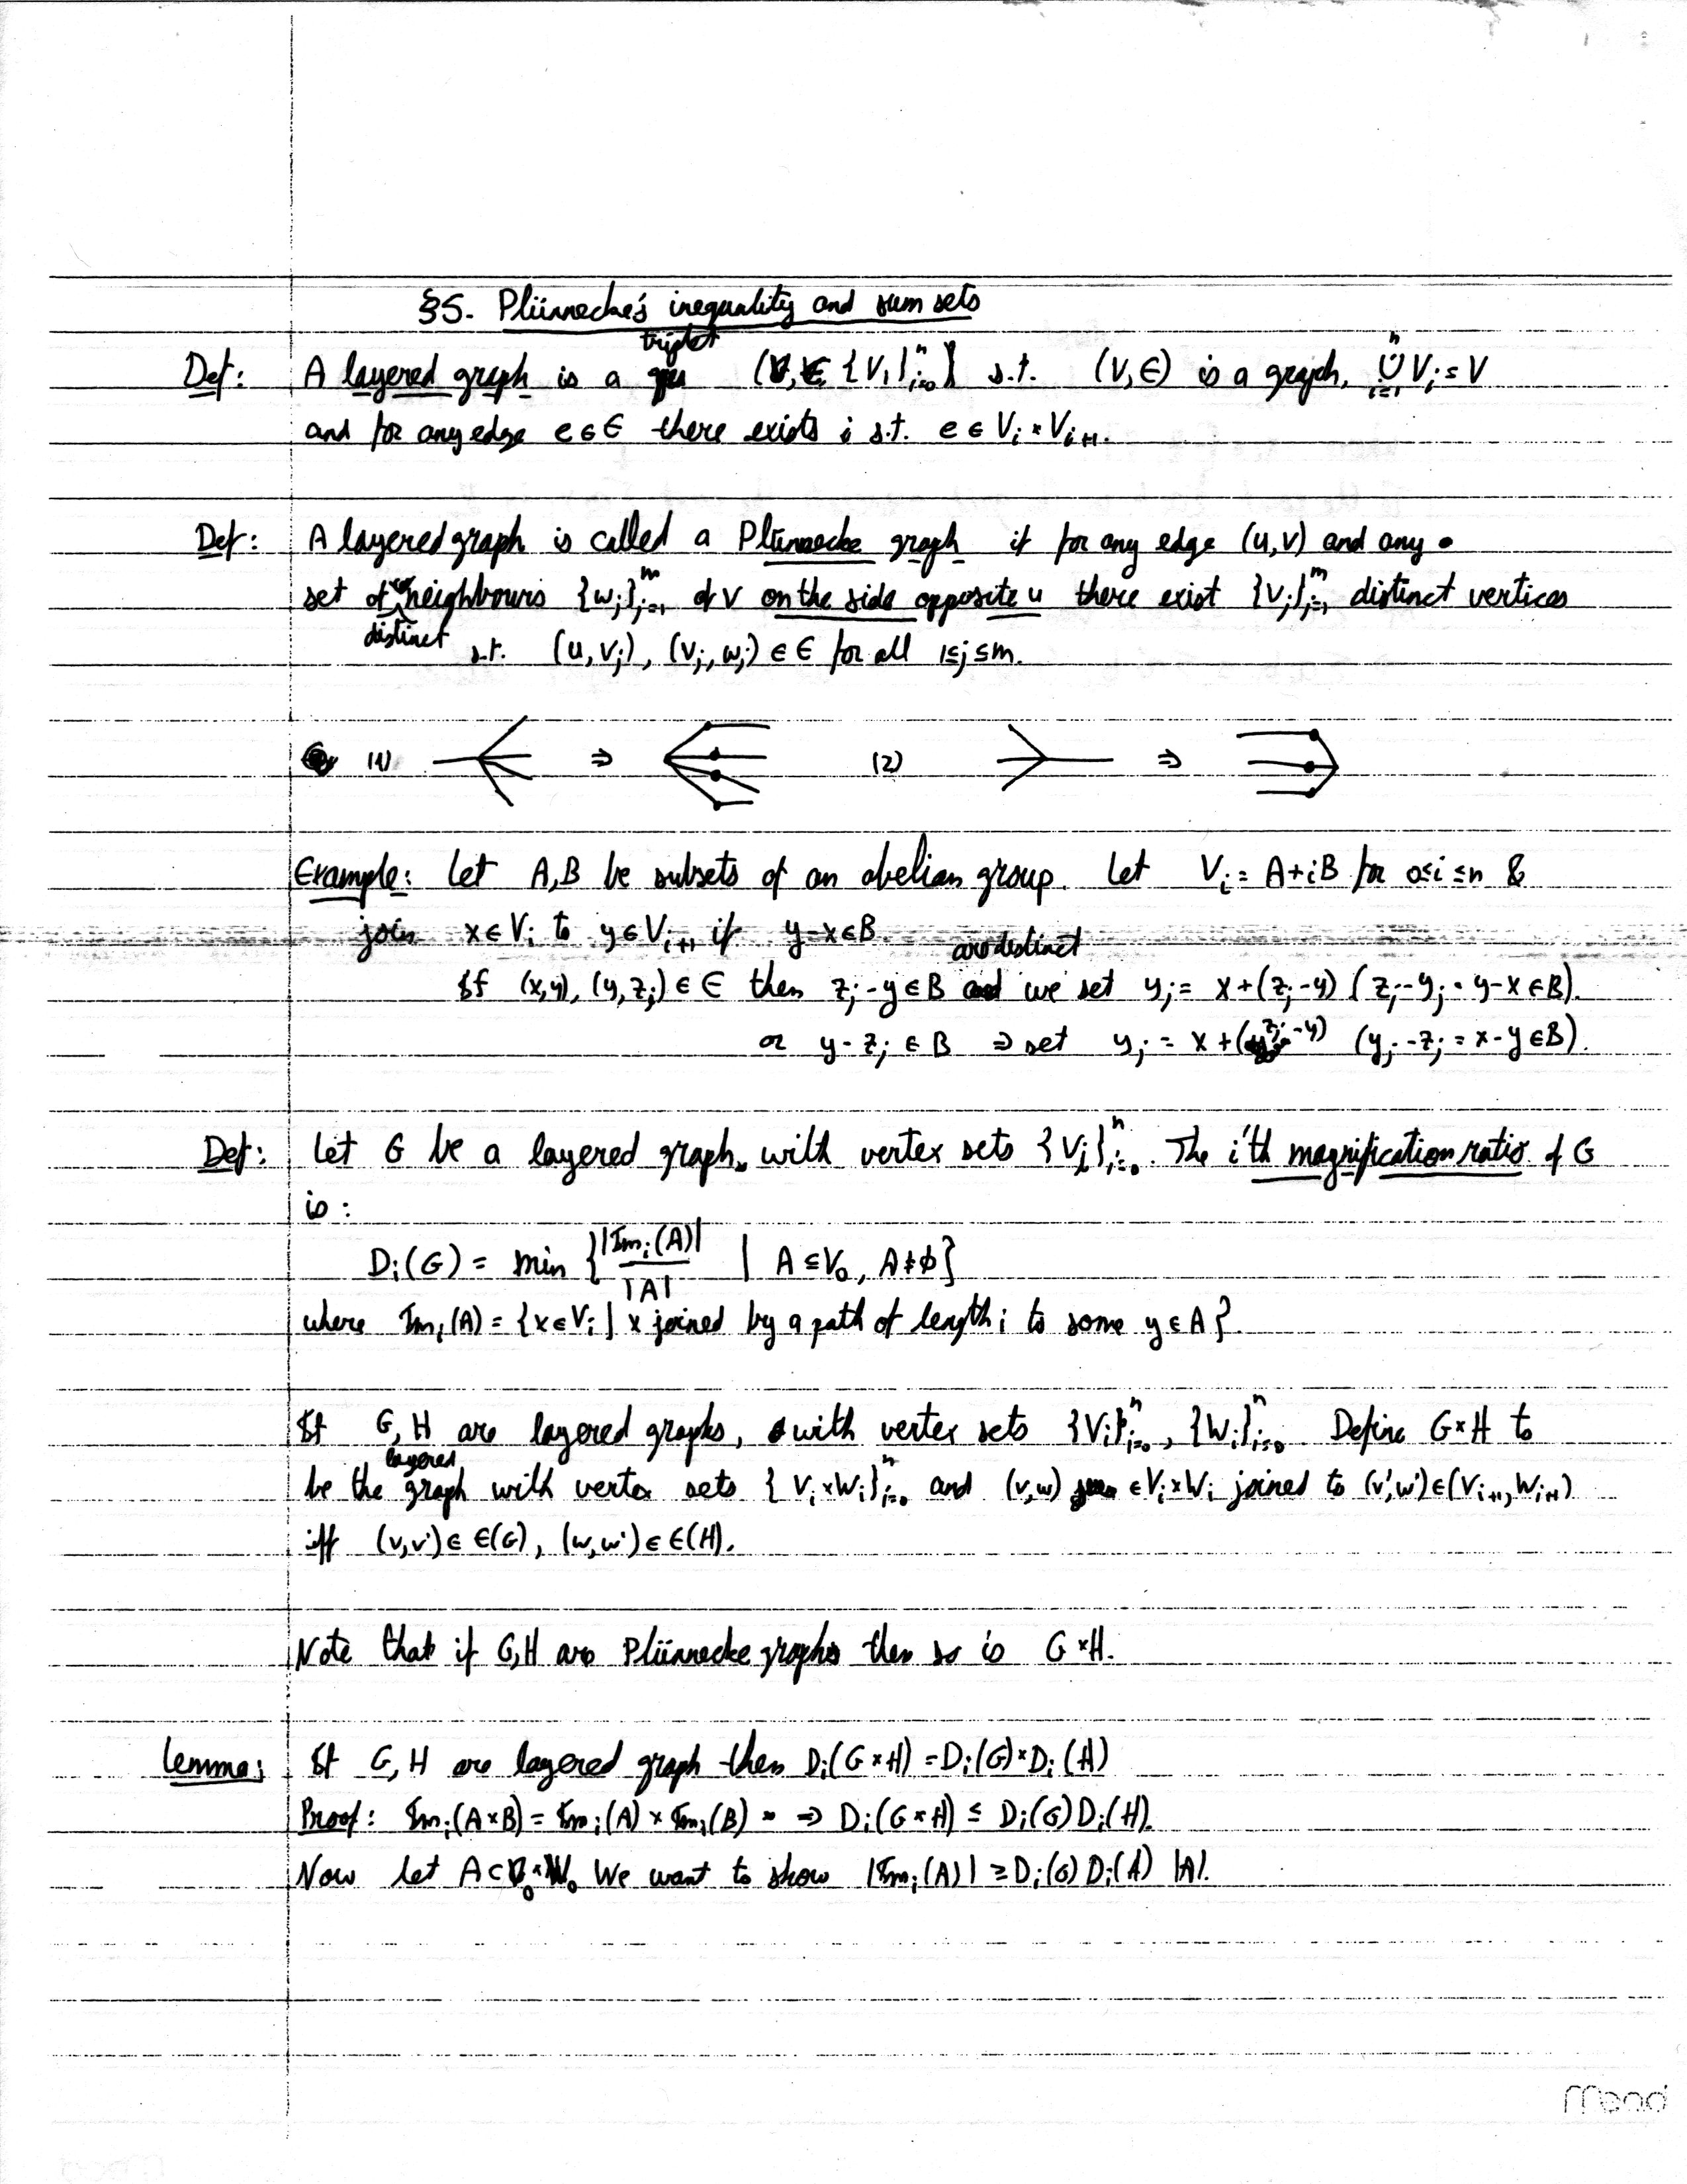 §5. Plünnecke's inequality and sum sets
Def: A layered graph is a triplet (V, E, {Vi}ⁿi=0) s.t. (V,E) is a graph, ⋃̇ⁿi=1 Vi = V
and for any edge e∈E there exists i s.t. e ∈ Vi × Vi+1.
Def: A layered graph is called a Plünnecke graph if for any edge (u,v) and any
set of distinct neighbours {wj}ᵐj=1 of v on the side opposite u there exist {vj}ᵐj=1 distinct vertices
s.t. (u,vj), (vj,wj) ∈ E for all 1≤j≤m.
(1) ⇒ (2) ⇒
Example: Let A,B be subsets of an abelian group. Let Vi = A+iB for 0≤i≤n &
join x∈Vi to y∈Vi+1 if y-x∈B.
If (x,y), (y,zj) ∈ E are distinct then zj-y∈B and we set yj = x+(zj-y) (zj-yj = y-x∈B).
or y-zj ∈ B ⇒ set yj = x+(zj-y) (yj-zj = x-y∈B).
Def: Let G be a layered graph with vertex sets {Vi}ⁿi=0. The i'th magnification ratio of G
is:
Di(G) = min {|Imi(A)| / |A| | A⊆V0, A≠∅}
where Imi(A) = {x∈Vi | x joined by a path of length i to some y∈A}.
If G, H are layered graphs, with vertex sets {Vi}ⁿi=0, {Wi}ⁿi=0. Define G×H to
be the layered graph with vertex sets {Vi×Wi}ⁿi=0 and (v,w) ∈Vi×Wi joined to (v',w')∈(Vi+1, Wi+1)
iff (v,v')∈E(G), (w,w')∈E(H).
Note that if G,H are Plünnecke graphs then so is G×H.
Lemma: If G, H are layered graph then Di(G×H) = Di(G)×Di(H)
Proof: Imi(A×B) = Imi(A) × Imi(B) ⇒ Di(G×H) ≤ Di(G)Di(H).
Now let A⊂V0×W0 We want to show |Imi(A)| ≥ Di(G)Di(H) |A|.
Mead